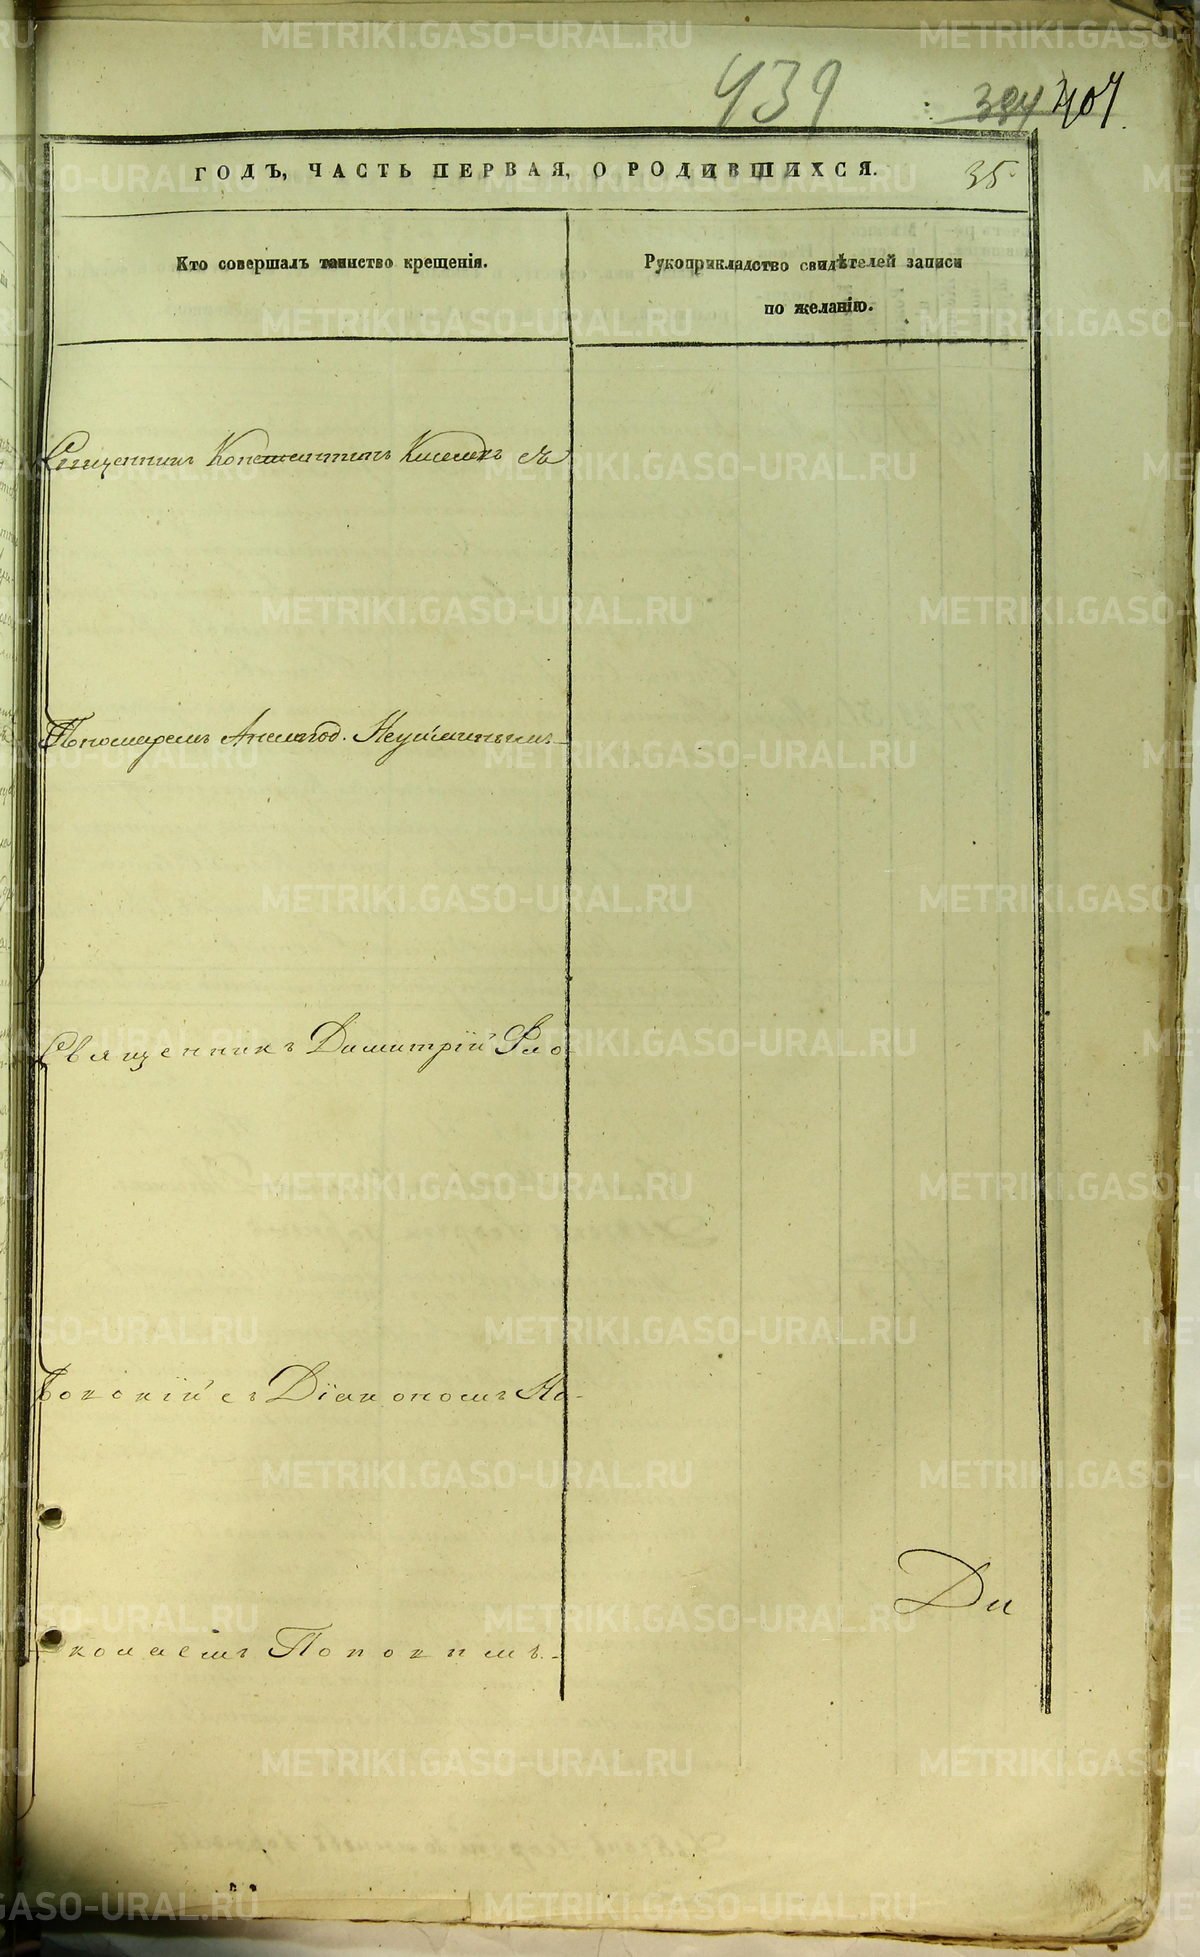 439
384 407
ГОДЪ, ЧАСТЬ ПЕРВАЯ, О РОДИВШИХСЯ. 35.
Кто совершалъ таинство крещенія.
Рукоприкладство свидѣтелей записи
по желанію.
Священникъ Константинъ съ
Пономаремъ Неуйминымъ.
Священникъ Димитрій Фло
ровскій съ Діакономъ Ни-
колаемъ Поповымъ.
Ди
METRIKI.GASO-URAL.RU